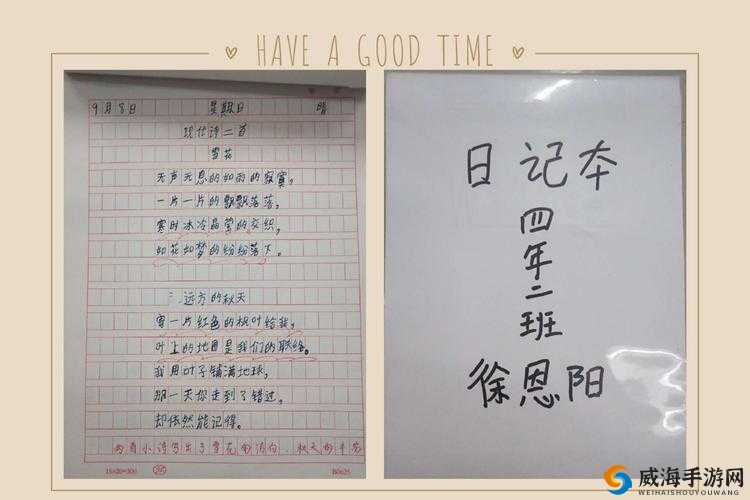 HAVE A GOOD TIME
9月8日 星期日 晴
现代诗二首
雪花
无声无息的如雨的寂寞,
一片一片的飘飘落落。
寒时冰冷晶莹的交织,
如花如梦的纷纷落下。
远方的秋天
寄一片红色的枫叶给我,
叶上的地图是我们的联络。
我用叶子铺满地球,
那一天你走到了错过,
却依然能记得。
两首小诗写出了雪花的洁白,秋天的丰
15×20=300
日记本
四年二班
徐恩阳
威海手游网
WEIHAISHOUYOUWANG